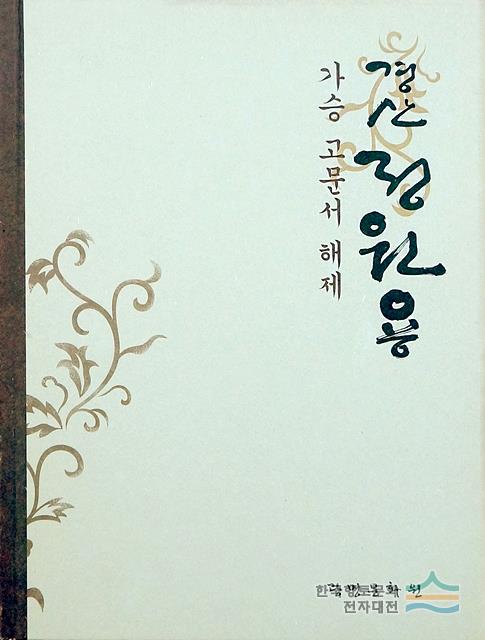 경산 정원용
가승 고문서 해제
광명문화원
한국향토문화
전자대전